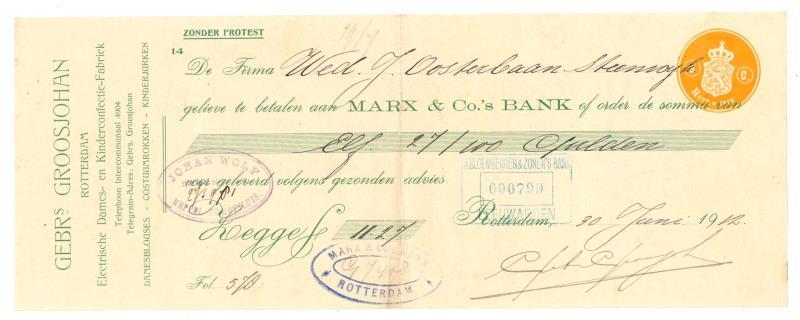 GEBRS GROOSJOHAN
ROTTERDAM
Electrische Dames- en Kinderconfectie-Fabriek
Telephoon Intercommunaal 4904
Telegram-Adres: Gebrs. Groosjohan
DAMESBLOUSES - COSTUUMROKKEN - KINDERJURKEN
ZONDER PROTEST
14
De Firma Wed. J. Oosterbaan Steenwijk
gelieve te betalen aan MARX & Co.'s BANK of order de somma van
Elf 27/100 Gulden
voor geleverd volgens gezonden advies.
JOHAN WOLF
A. BLOEMBERGEN & ZONEN'S BANK
000799
LEEUWARDEN
Rotterdam, 30 Juni 1912
Zegge f 11.27
MARX & Co's BANK
ROTTERDAM
Fol. 578